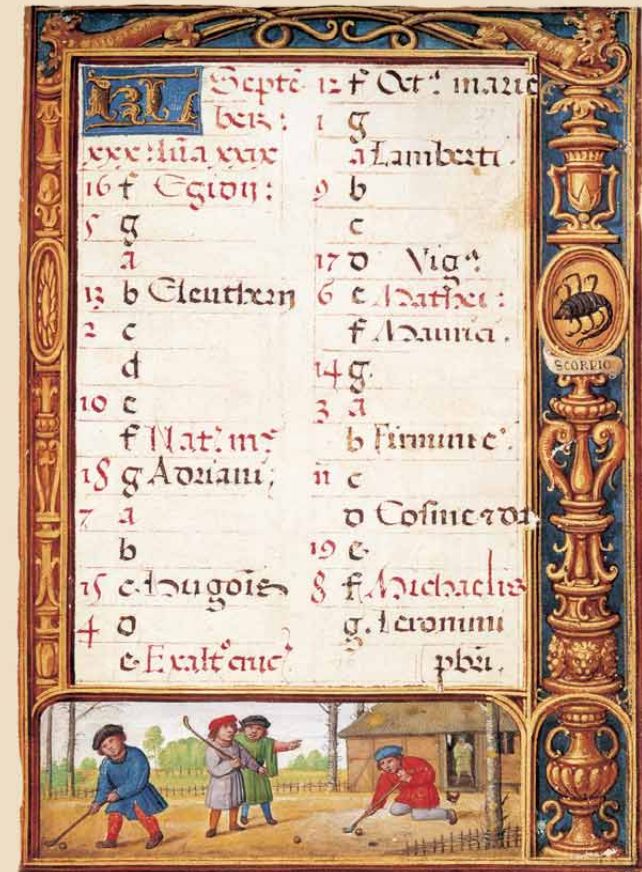 KL Septem
ber:
xxx: lũa xxix
16 f Egidij:
5 g
a
13 b Eleutherij
2 c
d
10 e
f Nat. mᵉ
18 g Adriani;
7 a
b
15 c
4 d
e Exaltᵒ cruc
12 f Octᵃ marie
1 g
a Lamberti.
9 b
c
17 d Vigᵃ
6 e Mathei:
f Maurici.
14 g.
3 a
b
11 c
d Cosme ⁊ da
19 e
8 f Michaelis
g. Ieronimi
pbri.
SCORPIO